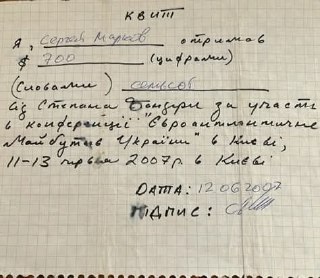 КВИТ
Я, Сергей Марков отримав
$ 700 (цифрами)
(словами) семьсот
від Степана Бандери за участь
в конференції "Євроатлантичне
Майбутнє України" в Києві,
11-13 червня 2007р. в Києві
ДАТА: 12062007
ПІДПИС: